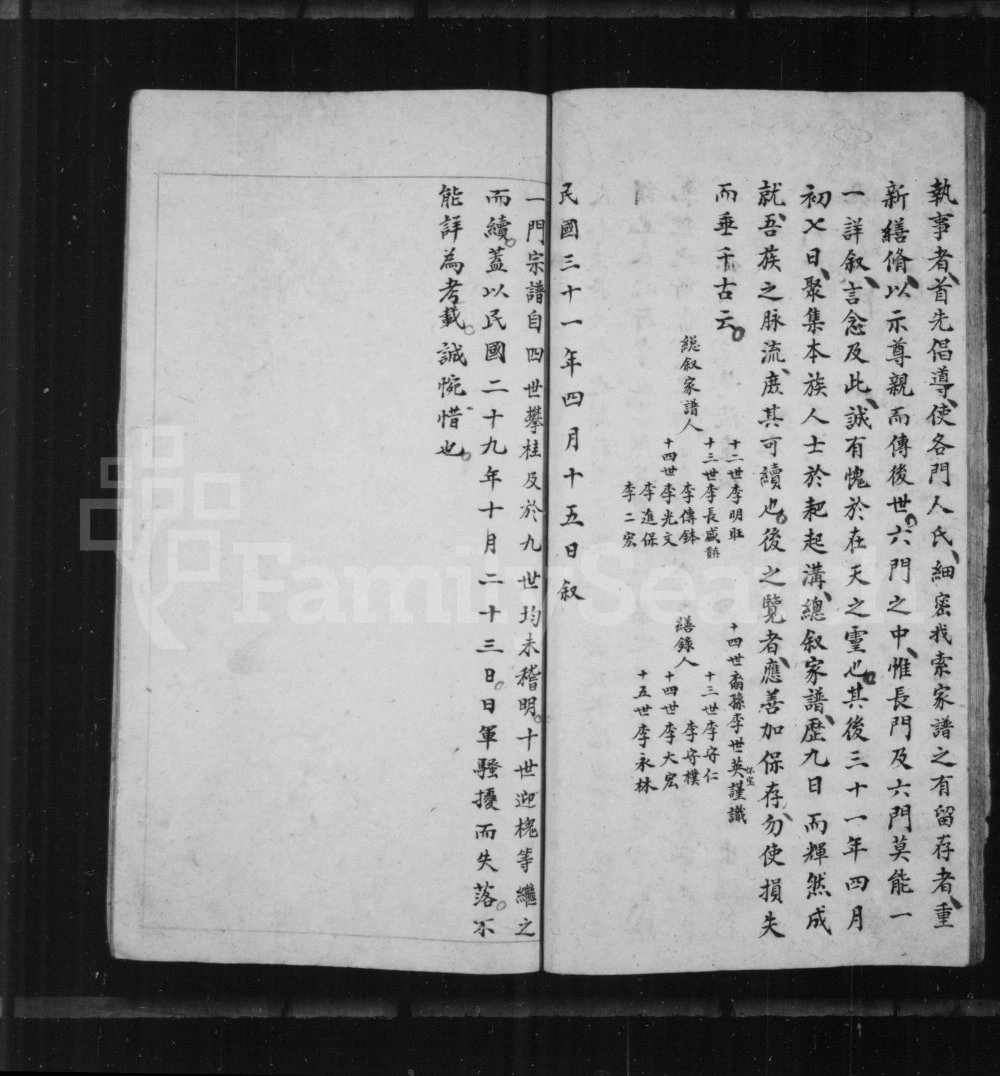 執事者、首先倡導、使各門人氏、細密找索家譜之有留存者、重
新繕脩、以示尊親而傳後世。六門之中、惟長門及六門莫能一
一詳叙、言念及此、誠有愧於在天之靈也。其後三十一年四月
初七日、聚集本族人士於起起溝、總叙家譜、歷九日而輝然成
就、吾蔟之脉流、庶其可續也。後之覽者、應善加保存、勿使損失
而垂千古云。
十四世裔孫李世英謹識
總叙家譜人
十二世李明旺
十三世李長盛
李傳鉢
十四世李光文
李進保
李二宏
繕錄人
十三世李守仁
李守樸
十四世李大宏
十五世李永林
民國三十一年四月十五日叙
一門宗譜自四世攀桂及於九世均未稽明。十世迎槐等繼之
而續。蓋以民國二十九年十月二十三日。日軍騷擾而失落。不
能詳為考載。誠惋惜也。
FamilySearch